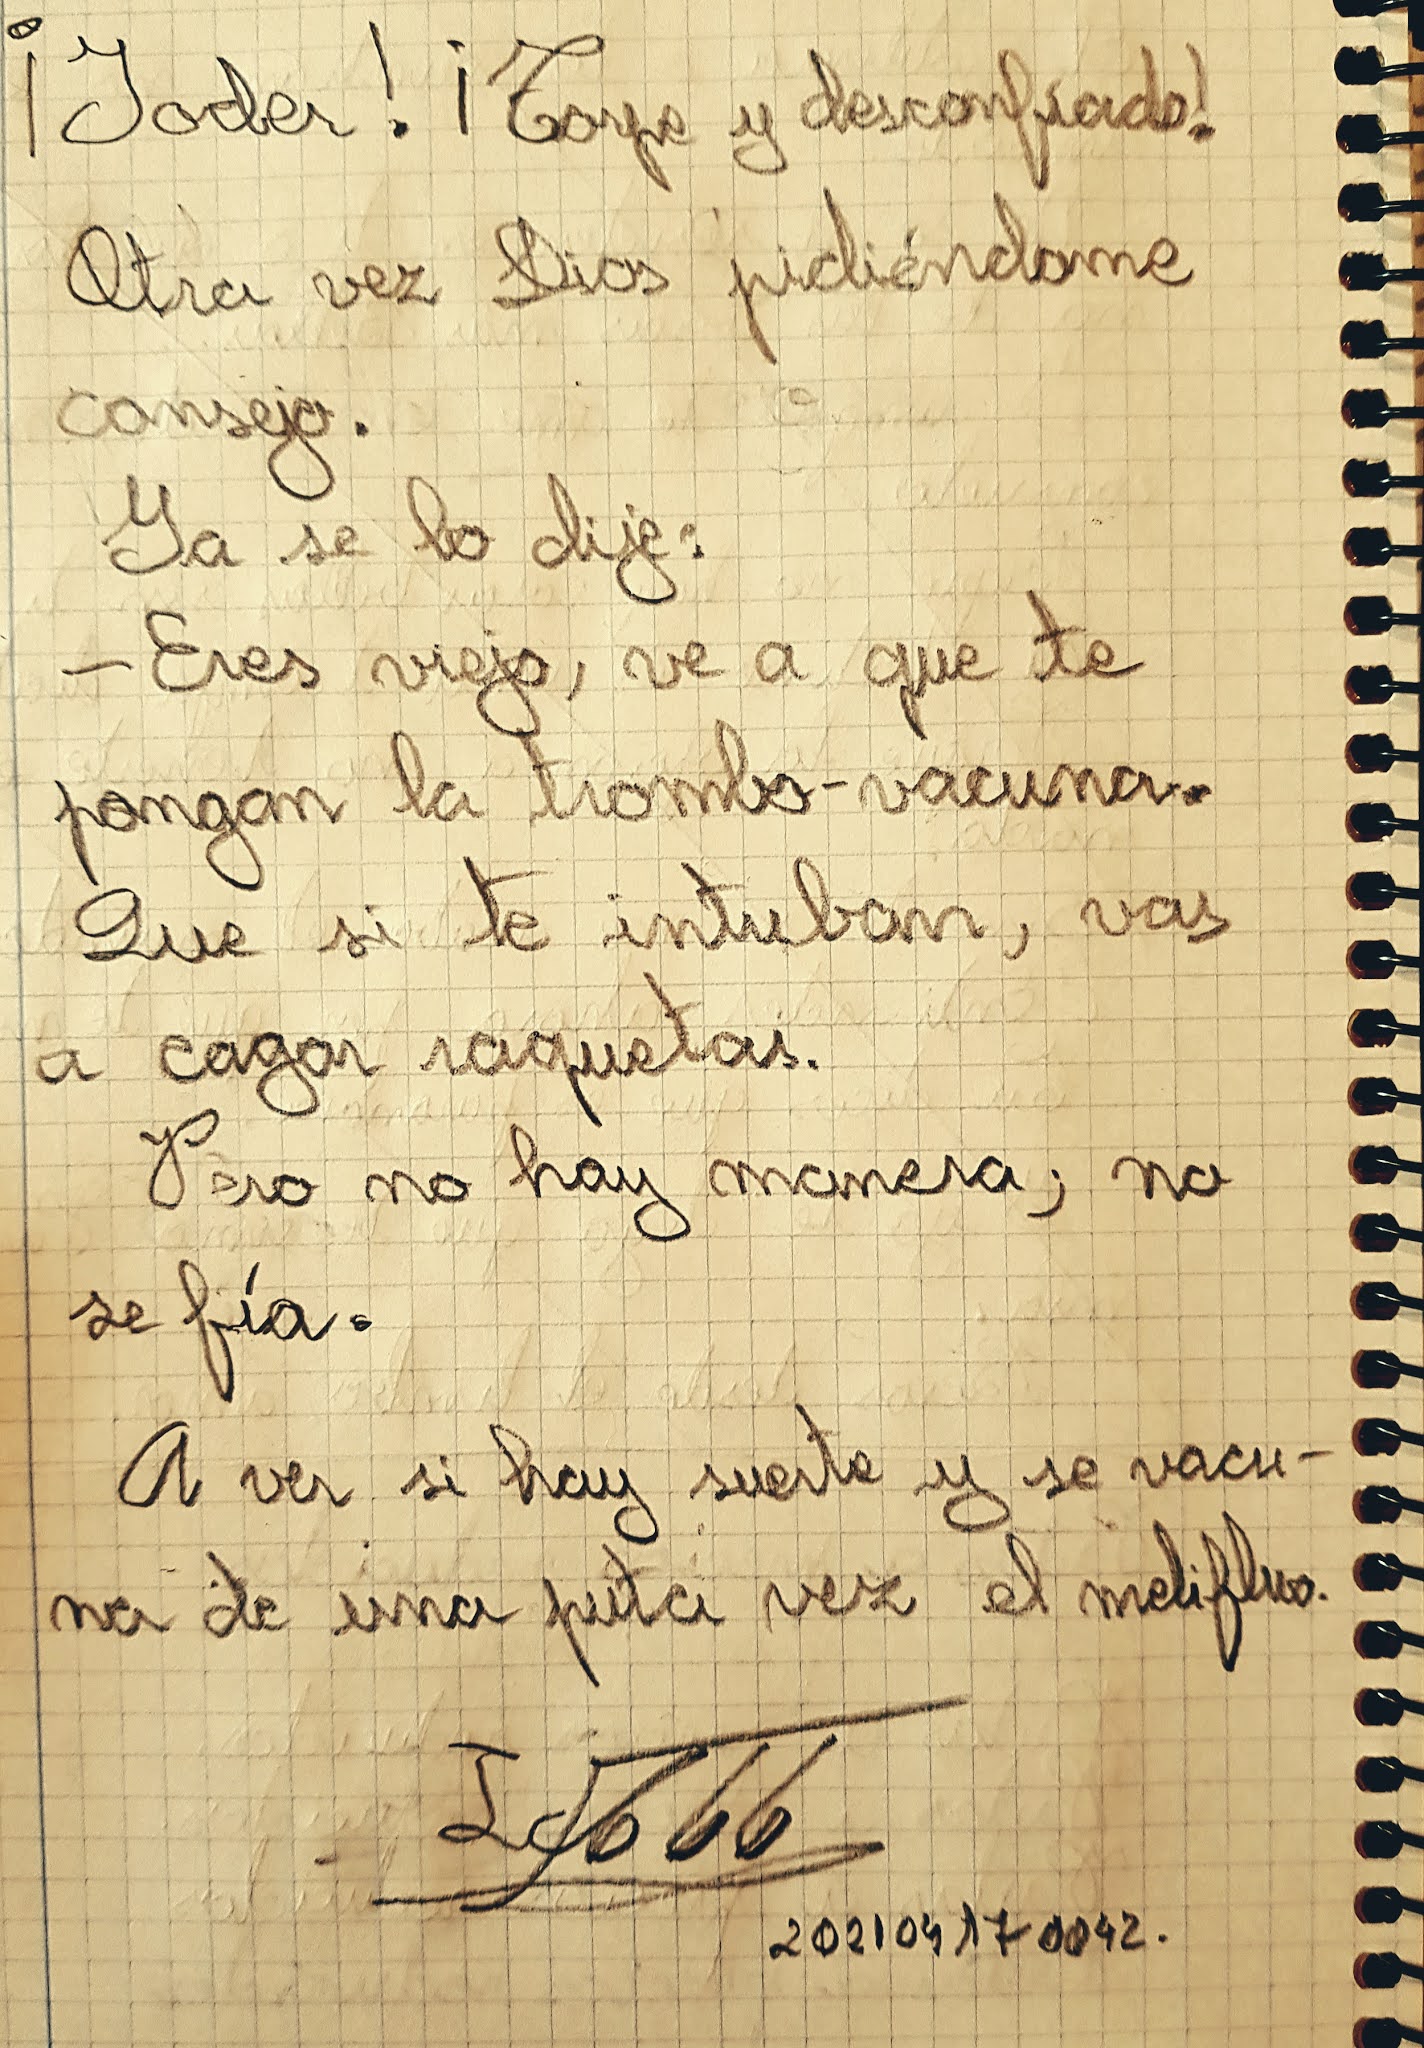 ¡Joder! ¡Torpe y desconfiado!
Otra vez Dios pidiéndome
consejo.
Ya se lo dije:
-Eres viejo, ve a que te
pongan la trombo-vacuna.
Que si te intuban, vas
a cagar raquetas.
Pero no hay manera; no
se fía.
A ver si hay suerte y se vacu-
na de una puta vez el melifluo.
666
202104170042.